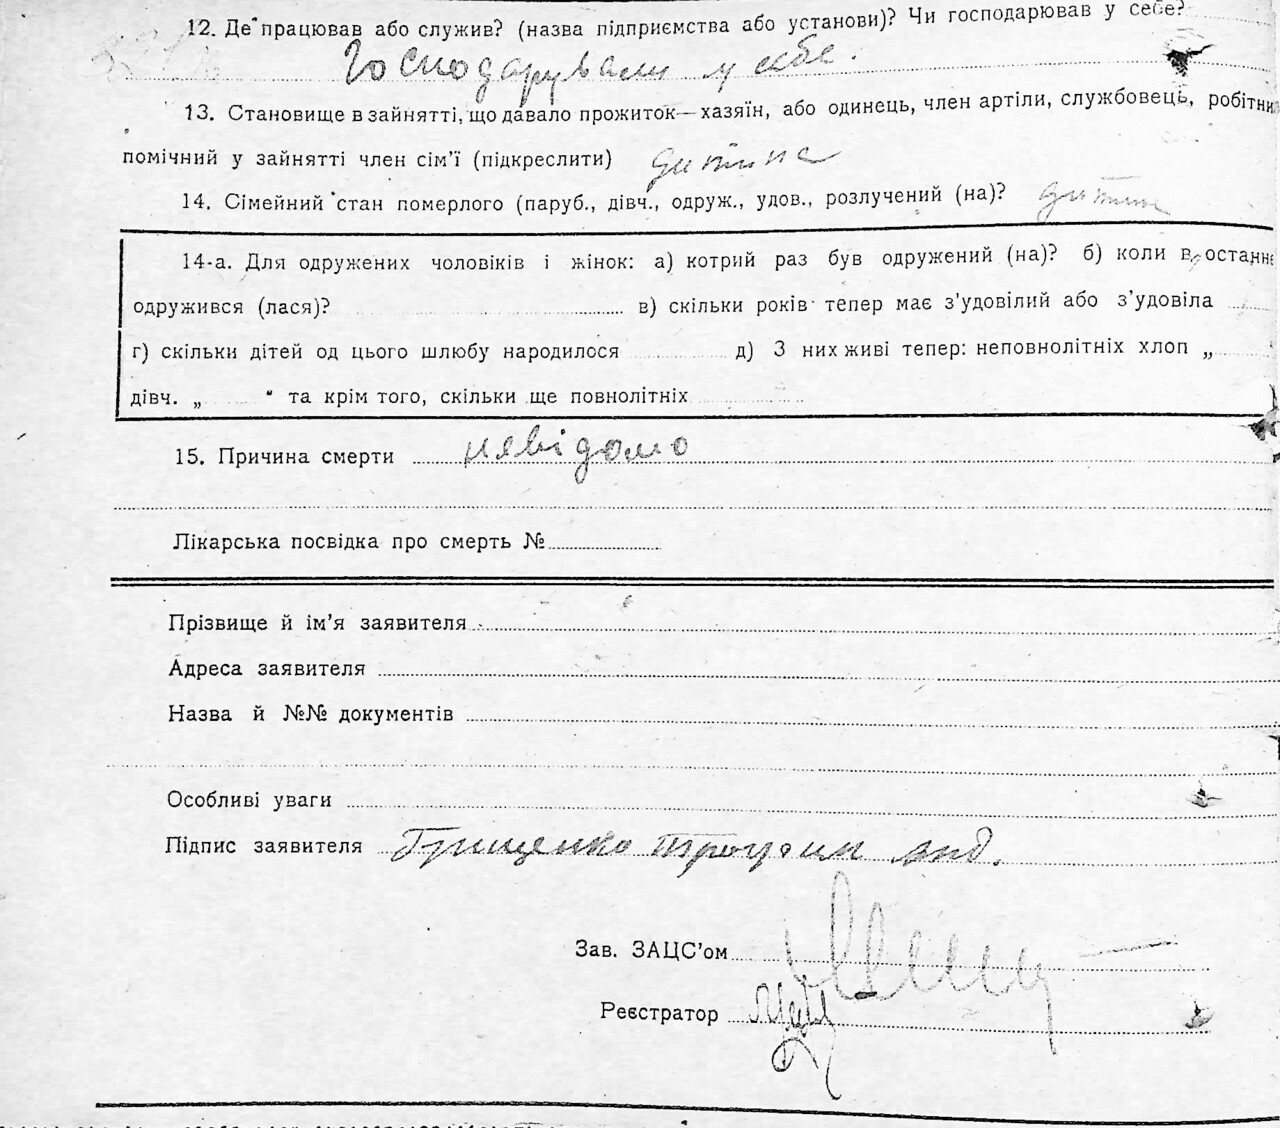 12. Де працював або служив? (назва підприємства або установи)? Чи господарював у себе?
Господарували у себе.
13. Становище в зайнятті, що давало прожиток—хазяїн, або одинець, член артіли, службовець, робітни
помічний у зайнятті член сім'ї (підкреслити) дитина
14. Сімейний стан померлого (паруб., дівч., одруж., удов., розлучений (на)? дитина
14-а. Для одружених чоловіків і жінок: а) котрий раз був одружений (на)? б) коли в останнє
одружився (лася)? в) скільки років тепер має з'удовілий або з'удовіла
г) скільки дітей од цього шлюбу народилося д) З них живі тепер: неповнолітніх хлоп „
дівч. „ “ та крім того, скільки ще повнолітніх
15. Причина смерти невідомо
Лікарська посвідка про смерть №
Прізвище й ім'я заявителя
Адреса заявителя
Назва й №№ документів
Особливі уваги
Підпис заявителя Грищенко
Зав. ЗАЦС'ом
Реєстратор